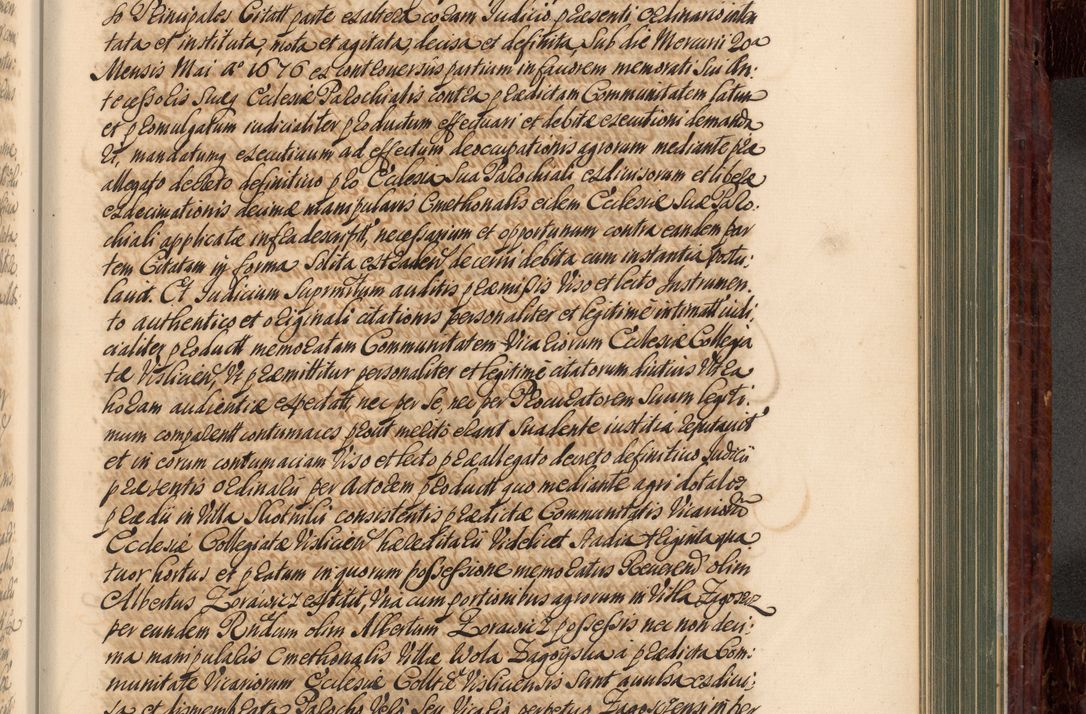 so Principales Citatt parte ex altera coram Judicio præsenti Ordinario inten
tata et instituta, mota et agitata, decisa et definita, Sub die Mercurii 20a
Mensis Mai ao 1676 ex controversiis partium in favorem memorati Sui An:
tecessoris Suæq Ecclesiæ Parochialis contra prædictam Communitatem latum
et promulgatum iudicialiter productum effectuari et debitæ executioni demanda
et, mandatumq executivum ad effectum deoccupationis agrorum mediante præ
allegato decreto definitivo pro Ecclesia Sua Parochiali exdivisorum et liberæ
exdecimationis decimæ manipularis Cmethonalis eidem Ecclesiæ Suæ Paro:
chiali applicatæ infra descriptt, necessarium et opportunum contra eandem par
tem Citatam in forma Solita extraden decerni debita cum instantia postu:
lavit. Et Judicium Supranttum auditis præmissis Viso et lecto Instrumen
to authentico et originali citationis personaliter et legitimè intimatt iudi
cialiter productt memoratam Communitatem Vicariorum Ecclesiæ Collegia
tæ Visliciew, Vt præmittitur personaliter et legitimè citatorum diutius Vltra
horam audientiæ expectatt, nec per Se, nec per Procuratorem Suum legiti:
mum comparentt contumaces prout merito erant Suadente iustitia reputavit
et in eorum contumaciam Viso et lecto præallegato decreto definitivo Judicii
præsentis Ordinarii per Actorem productt quo mediante agri dotales
prædii in Villa Skotnikii consistentis prædictæ Communitatis Vicariorum
Ecclesiæ Collegiatæ Visliciew hæreditarii Videlicet Stadia triginta qua
tuor hortus et pratum in quorum possessione memoratus Reverend olim
Albertus Zorawicz extitit, Vna cum portionibus agrorum in Villa Zagoscz
per eundem Rndum olim Albertum Zorawicz possessis nec non deci:
ma manipularis Cmethonalis Villæ Wola Zagoyska a prædicta Com:
munitate Vicariorum Ecclesiæ Colltæ Visliciensis Sunt avulsa exdivi:
sa et dismembrata Parocho Vero Seu Vicario perpetuo Zagoscensi in per